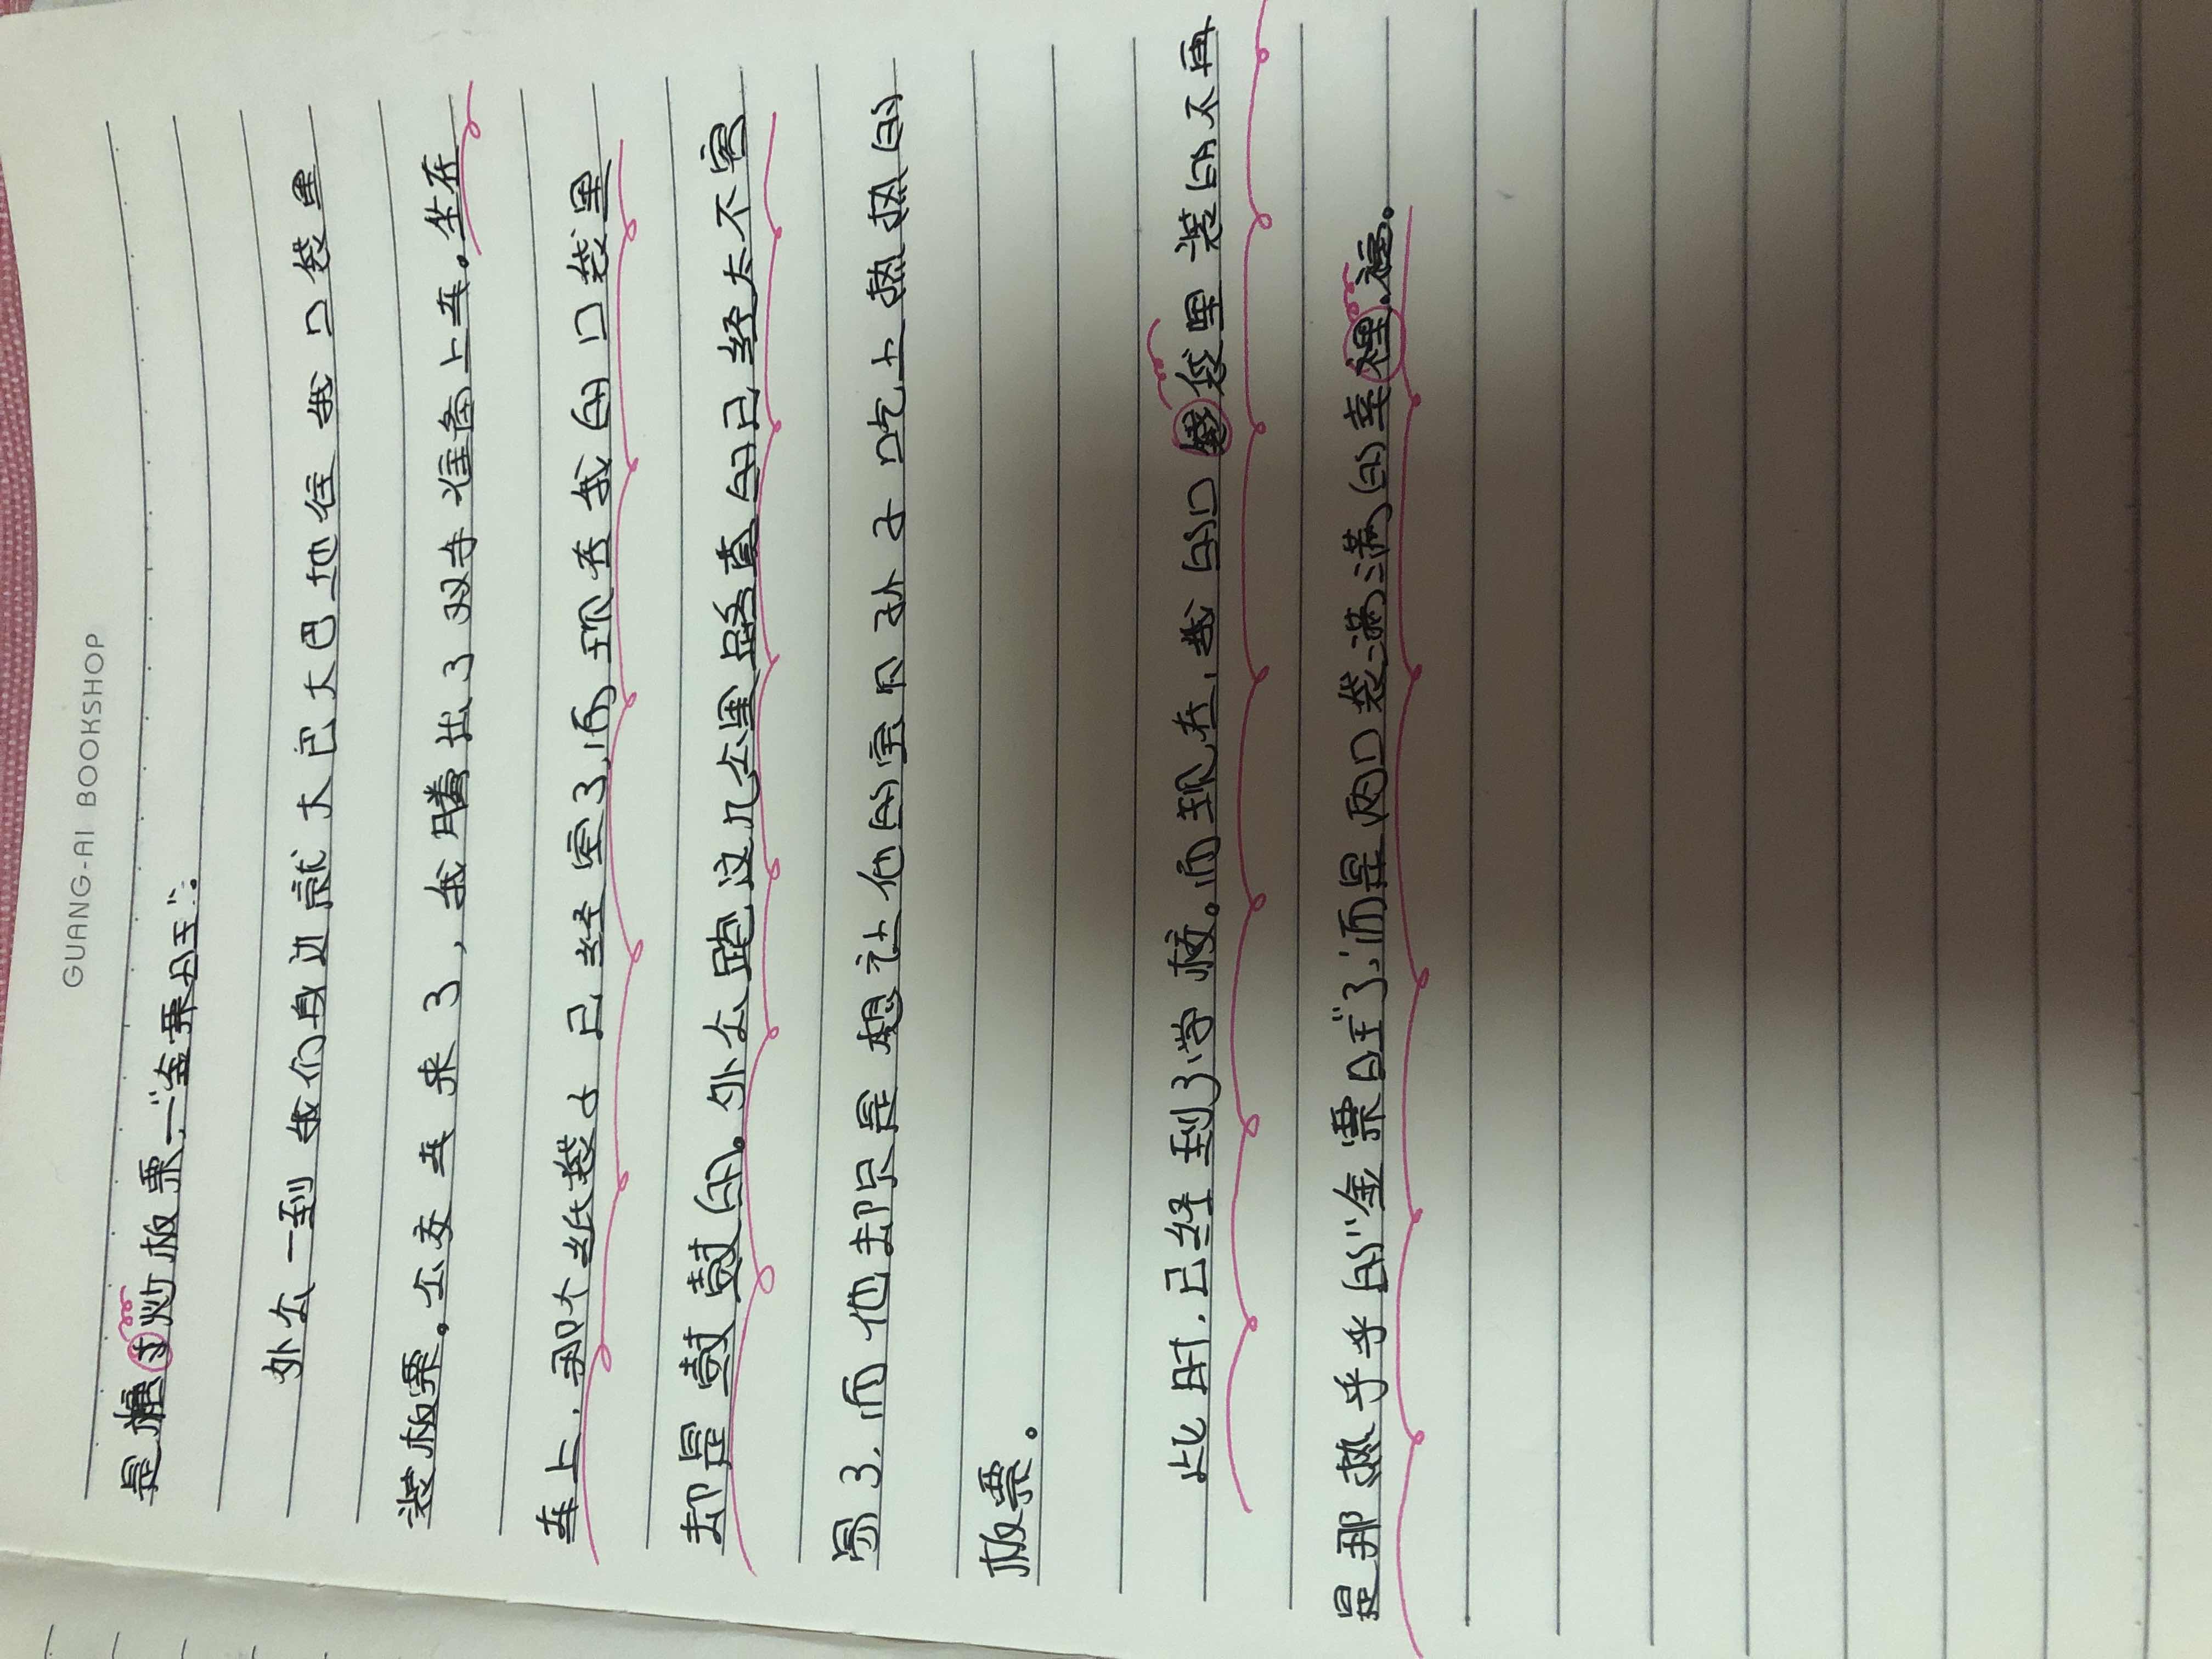 GUANG-AI BOOKSHOP
是炒板票—“金票王”。
外公一到我们身边就大包大包地往我口袋里
装板票。公交车来了，我腾出了双手准备上车。坐在
车上，那个纸袋子已经空了，而现在我的口袋里
却是鼓鼓的。外公跑这几公里路真的已经太不容
易了，而他却只是想让他的宝贝孙子吃上热热的
板票。
此时，已经到了学校。而现在，我的口袋里装的不再
是那热乎乎的“金票王”了，而是两口袋满满的幸福。